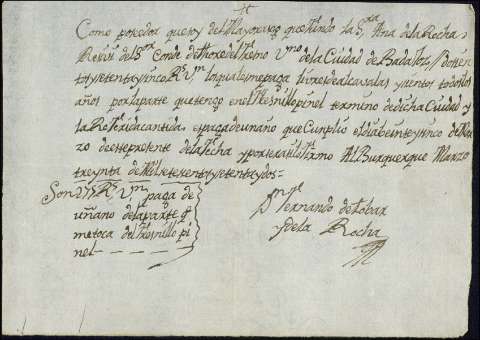 Como posedor que soy del Mayorasgo que fundo la S.ra Ana de la Rocha
Reziví del S.or Conde de Thore del Fresno Vz.no de la Ciudad de Badajoz, Dosien
tos y setenta y sinco R.s V.n los quales me paga livres de alcavalas, y sientos todos los
años por la parte que tengo en el Fresnillo pinel termino de dicha Ciudad y
la Referida cantidad es paga de un año que Cunplio el dia beinte y sinco de Mar
zo de este presente de la fecha y por ser asi lo firmo Alburquerque Marzo
treynta de Mil setesentos y setenta y dos =
Son 275 R.s V.n paga de
un año de la parte q.e
me toca del Fresnillo pi
nel
Fernando de Tobar
y de la Rocha